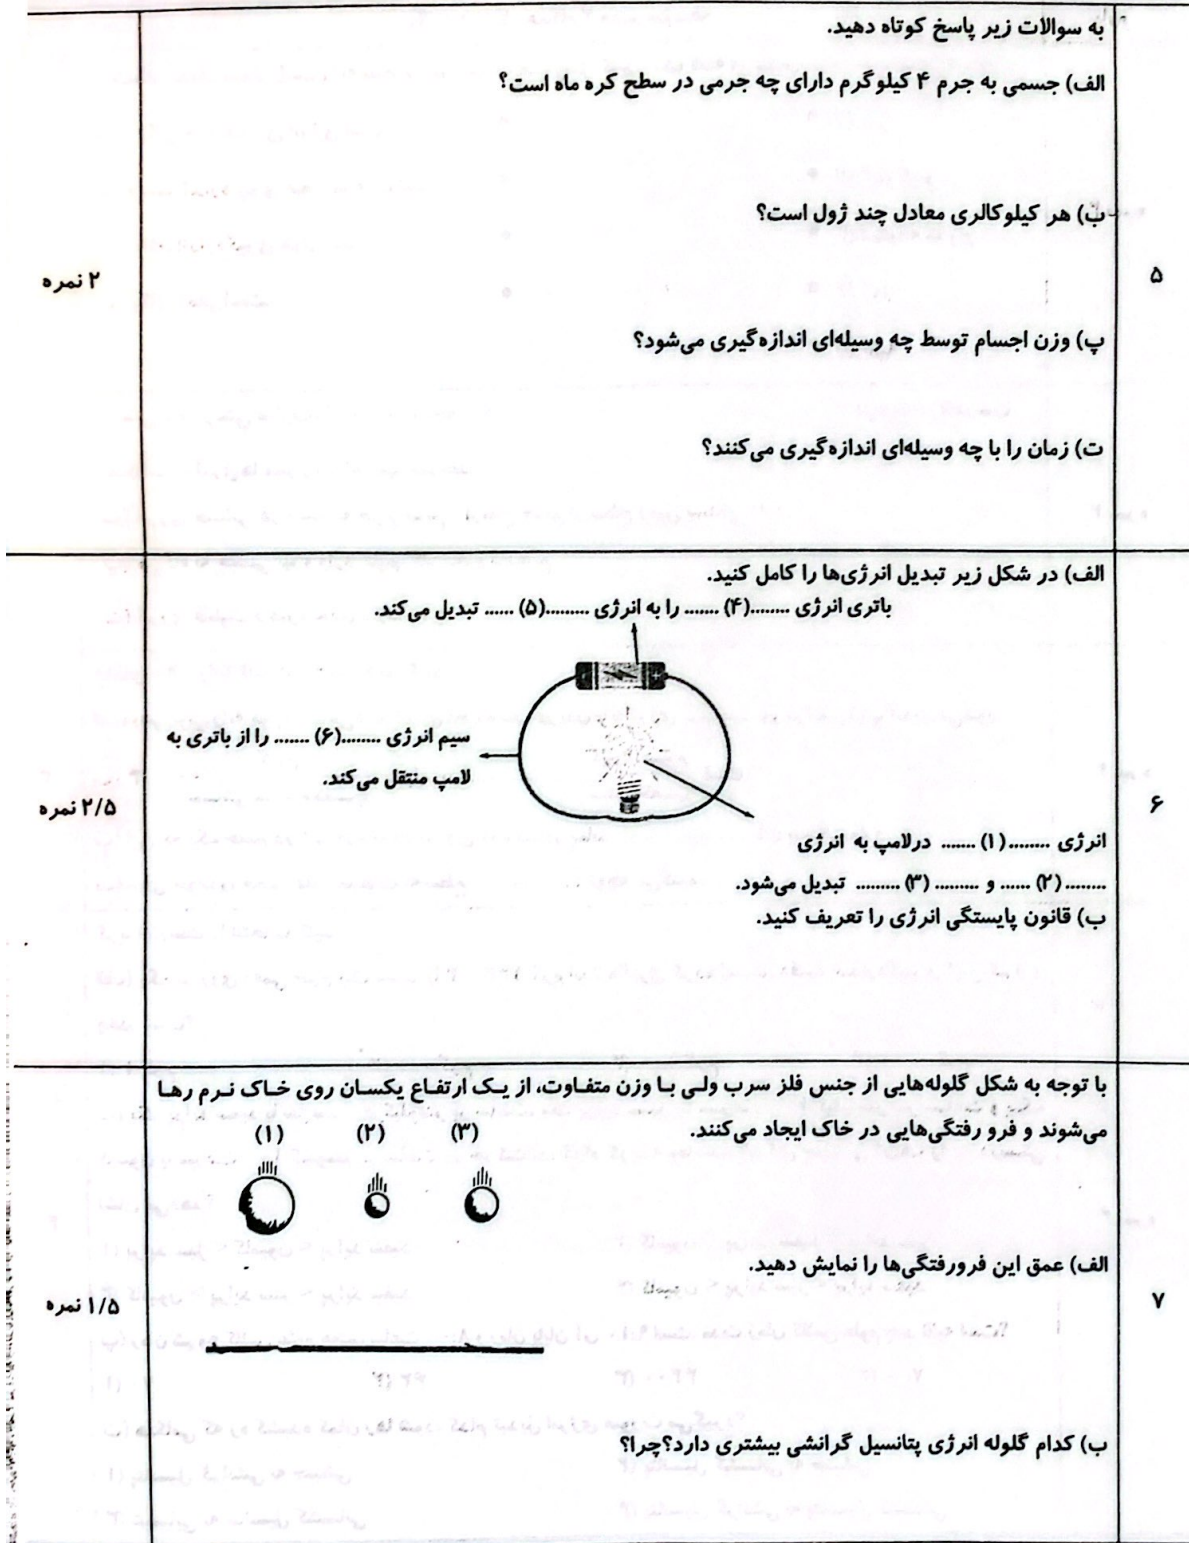 به سوالات زیر پاسخ کوتاه دهید.
الف) جسمی به جرم ۴ کیلوگرم دارای چه جرمی در سطح کره ماه است؟
ب) هر کیلوکالری معادل چند ژول است؟
۵
۲ نمره
پ) وزن اجسام توسط چه وسیله‌ای اندازه‌گیری می‌شود؟
ت) زمان را با چه وسیله‌ای اندازه‌گیری می‌کنند؟
الف) در شکل زیر تبدیل انرژی‌ها را کامل کنید.
باتری انرژی ........(۴) ....... را به انرژی .........(۵) ...... تبدیل می‌کند.
سیم انرژی ........(۶) ....... را از باتری به
لامپ منتقل می‌کند.
۶
۲/۵ نمره
انرژی ........(۱) ....... درلامپ به انرژی
........(۲) ...... و ......... (۳) ......... تبدیل می‌شود.
ب) قانون پایستگی انرژی را تعریف کنید.
با توجه به شکل گلوله‌هایی از جنس فلز سرب ولی بـا وزن متفـاوت، از یـک ارتفـاع یکسـان روی خـاک نـرم رهـا
می‌شوند و فرو رفتگی‌هایی در خاک ایجاد می‌کنند.
(۳) (۲) (۱)
الف) عمق این فرورفتگی‌ها را نمایش دهید.
۷
۱/۵ نمره
ب) کدام گلوله انرژی پتانسیل گرانشی بیشتری دارد؟چرا؟